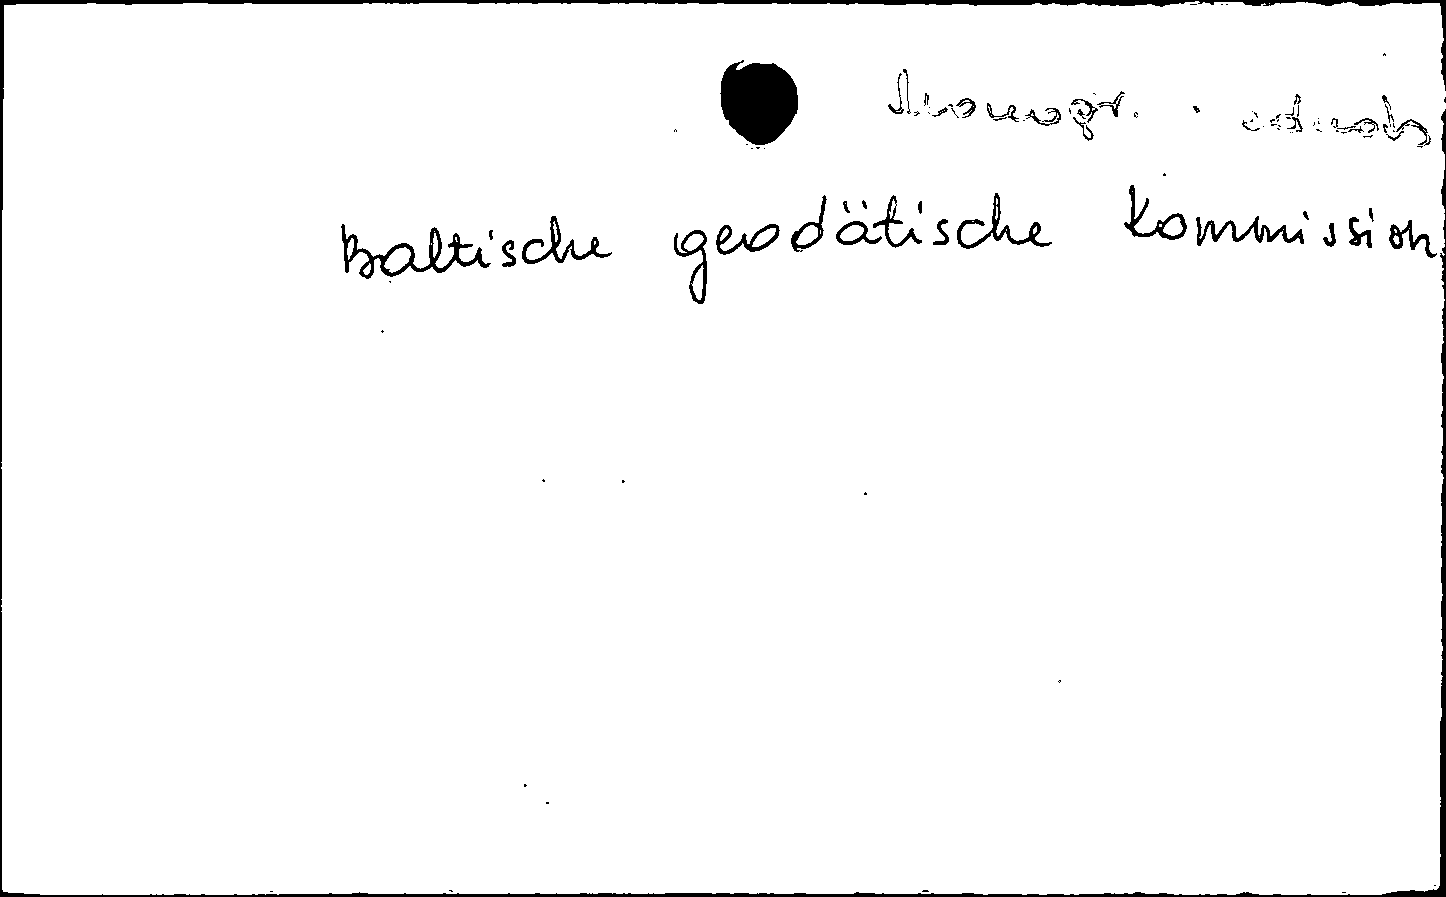 Monogr.
Baltische geodätische Kommission